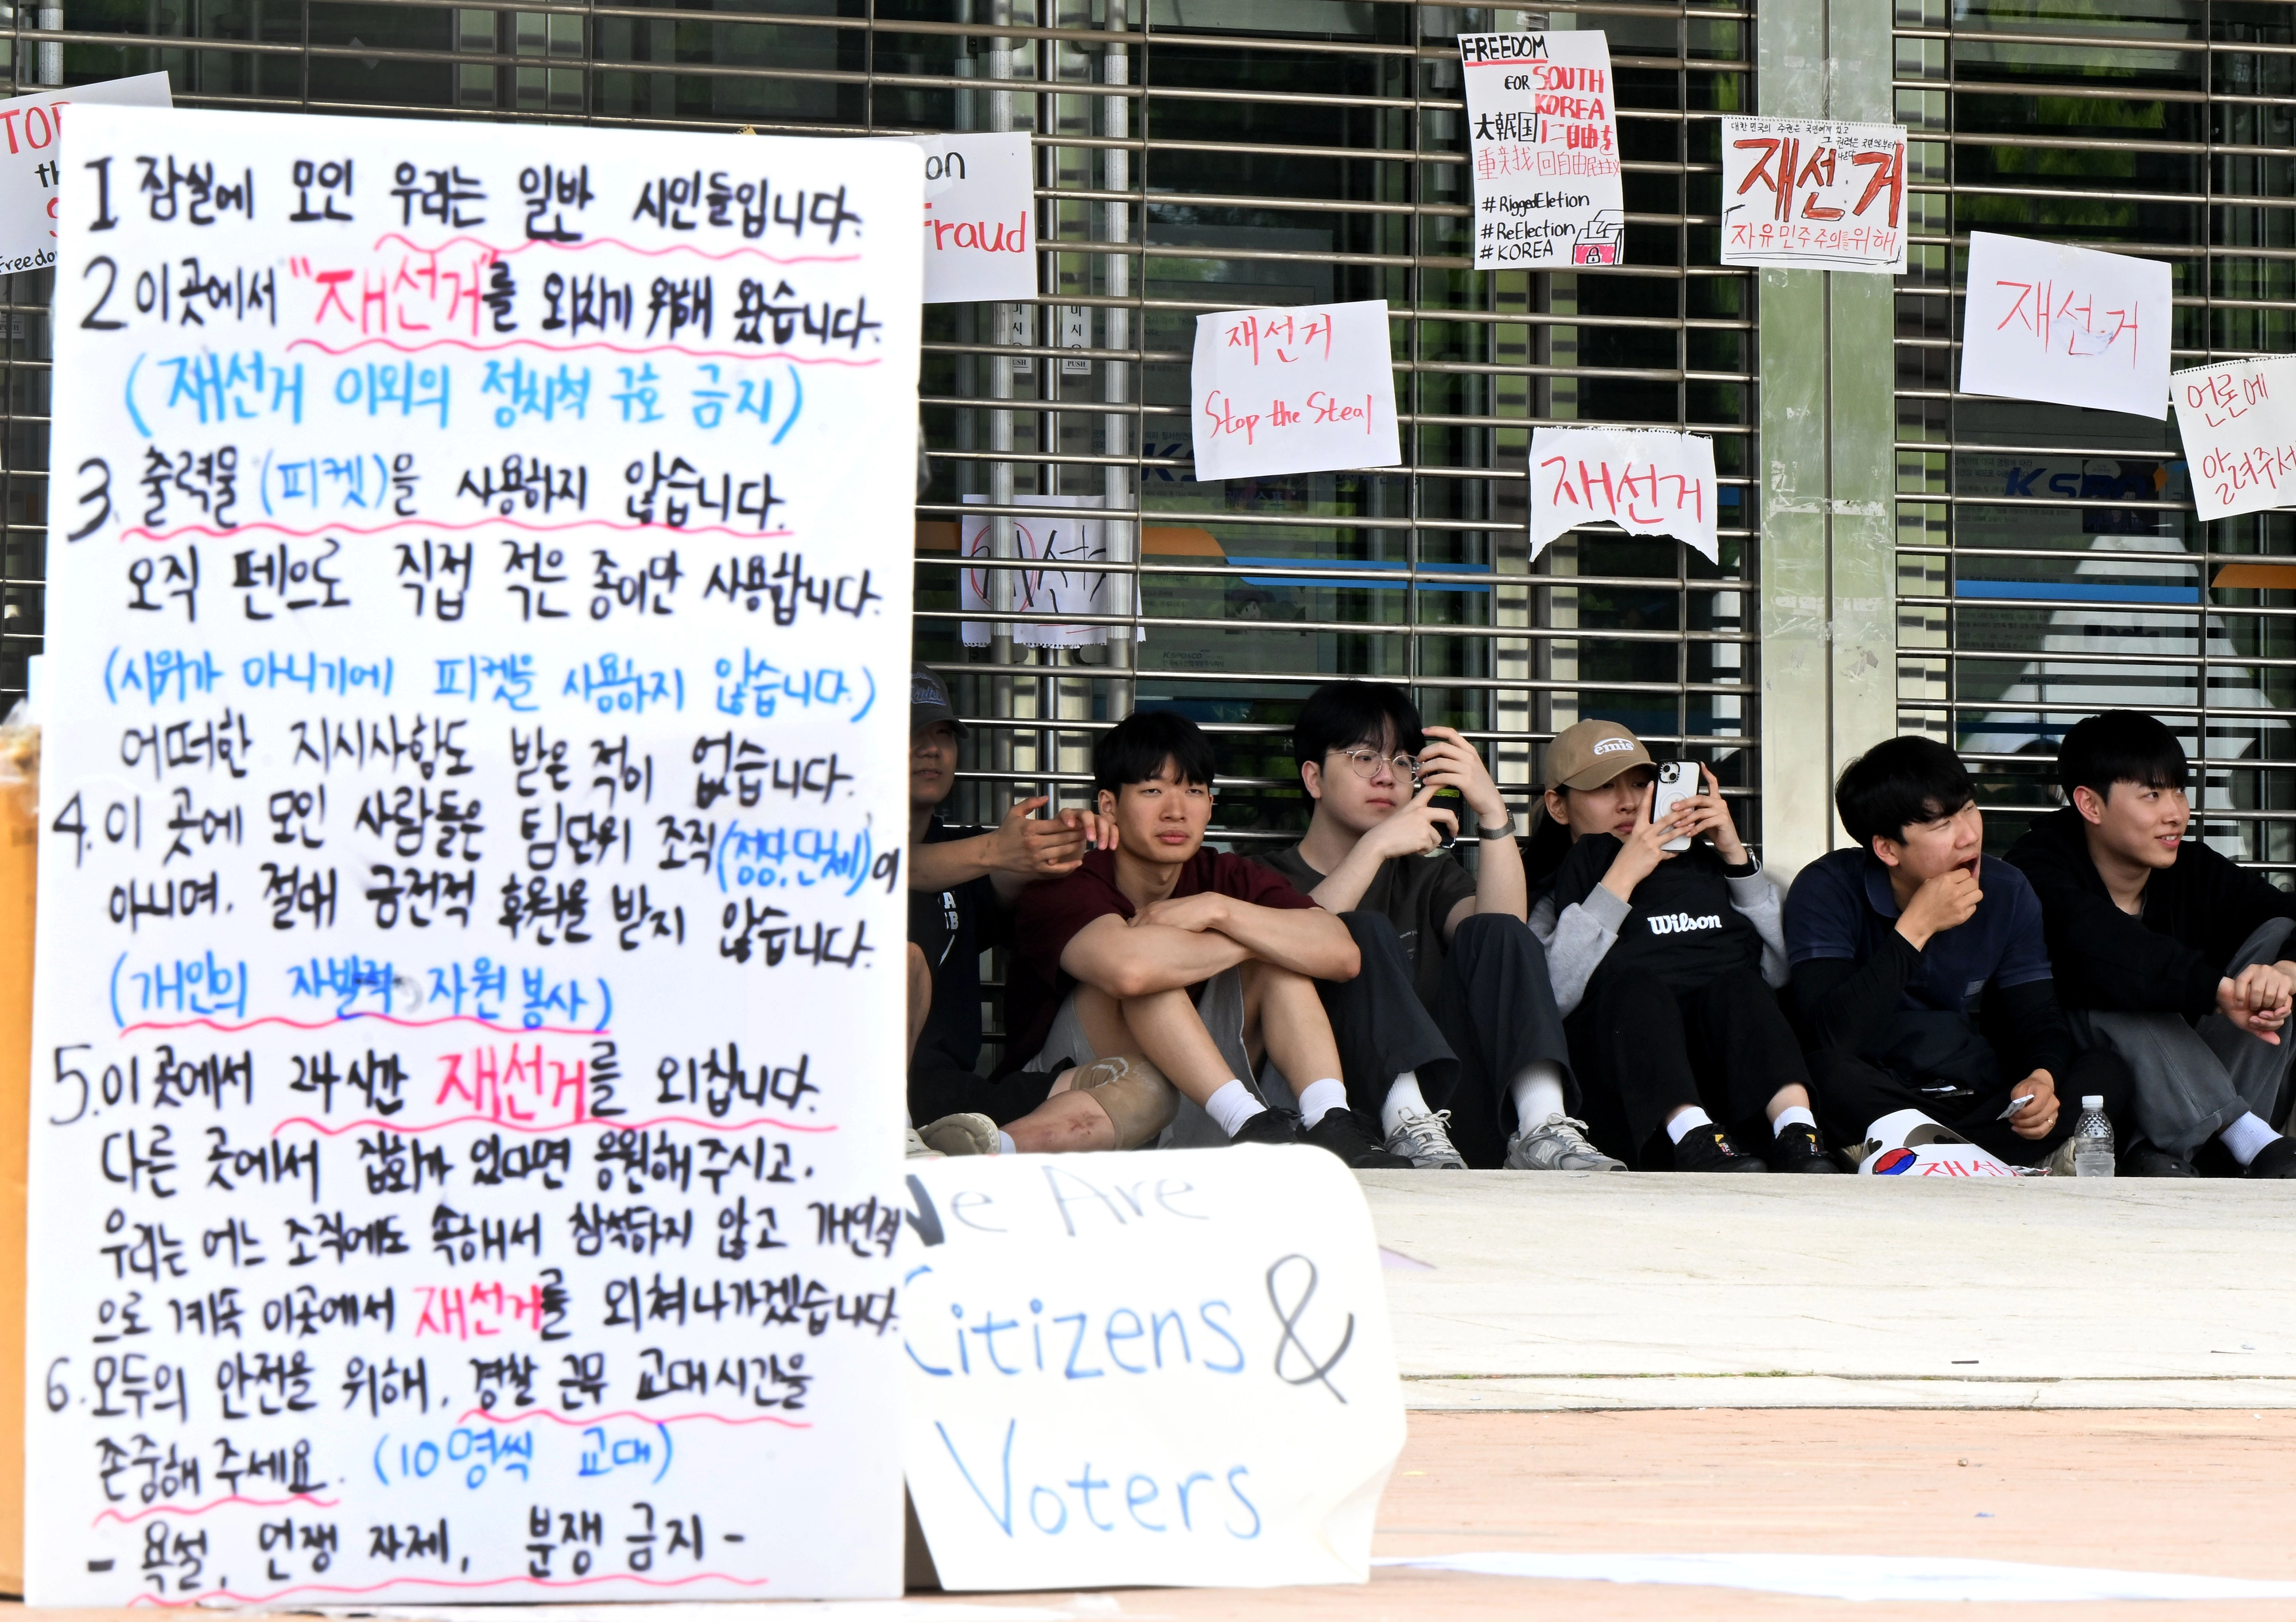 1 잠실에 모인 우리는 일반 시민들입니다.
2 이곳에서 "재선거"를 외치기 위해 왔습니다.
(재선거 이외의 정치적 구호 금지)
3. 출력물(피켓)을 사용하지 않습니다.
오직 펜으로 직접 적은 종이만 사용합니다.
(시위가 아니기에 피켓을 사용하지 않습니다.)
어떠한 지시사항도 받은 적이 없습니다.
4. 이 곳에 모인 사람들은 팀단위 조직(정당,단체)이
아니며. 절대 금전적 후원을 받지 않습니다.
(개인의 자발적 자원봉사)
5. 이곳에서 24시간 재선거를 외칩니다.
다른 곳에서 집회가 있다면 응원해주시고.
우리는 어느 조직에도 속해서 참석하지 않고 개인적
으로 계속 이곳에서 재선거를 외쳐나가겠습니다.
6. 모두의 안전을 위해. 경찰 근무 교대시간을
존중해 주세요. (10명씩 교대)
- 욕설, 언쟁 자제, 분쟁 금지 -
We Are
Citizens &
Voters
on
Fraud
FREEDOM
FOR SOUTH
KOREA
#RiggedEletion
#ReElection
#KOREA
대한민국의 주권은 국민에게 있고
재선거
자유민주주의를 위해
재선거
Stop the Steal
재선거
재선거
언론에
알려주서
PUSH
PUSH
emis
Wilson
재선